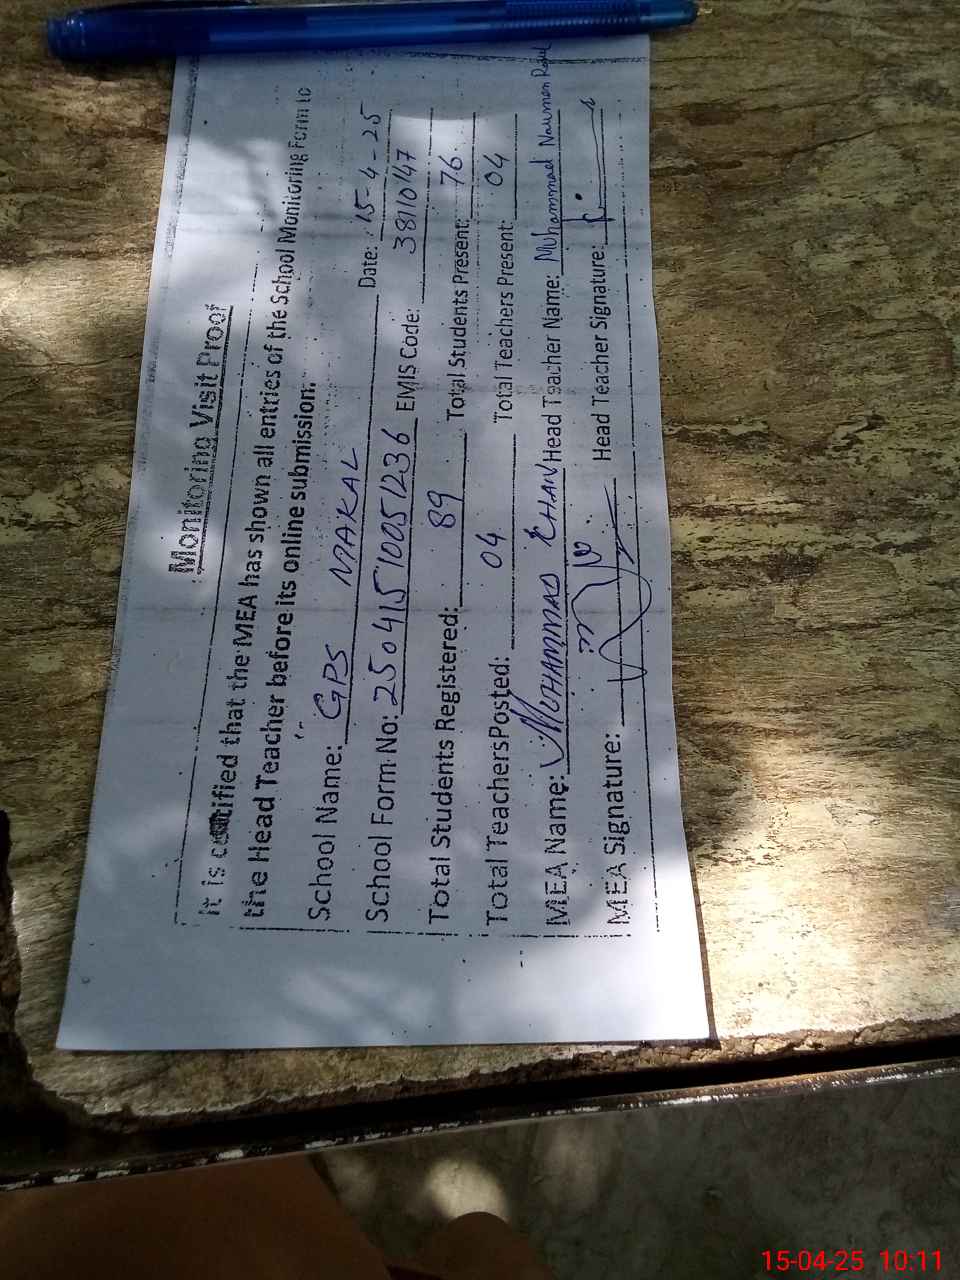 Monitoring Visit Proof
It is certified that the MEA has shown all entries of the School Monitoring Form to
the Head Teacher before its online submission.
School Name: GPS MAKAL Date: 15-4-25
School Form No: 250415100051236 EMIS Code: 38110147
Total Students Registered: 89 Total Students Present: 76
Total TeachersPosted: 04 Total Teachers Present: 04
MEA Name: MUHAMMAD KHAN Head Teacher Name: Muhammad Nauman
MEA Signature: Head Teacher Signature:
15-04-25 10:11